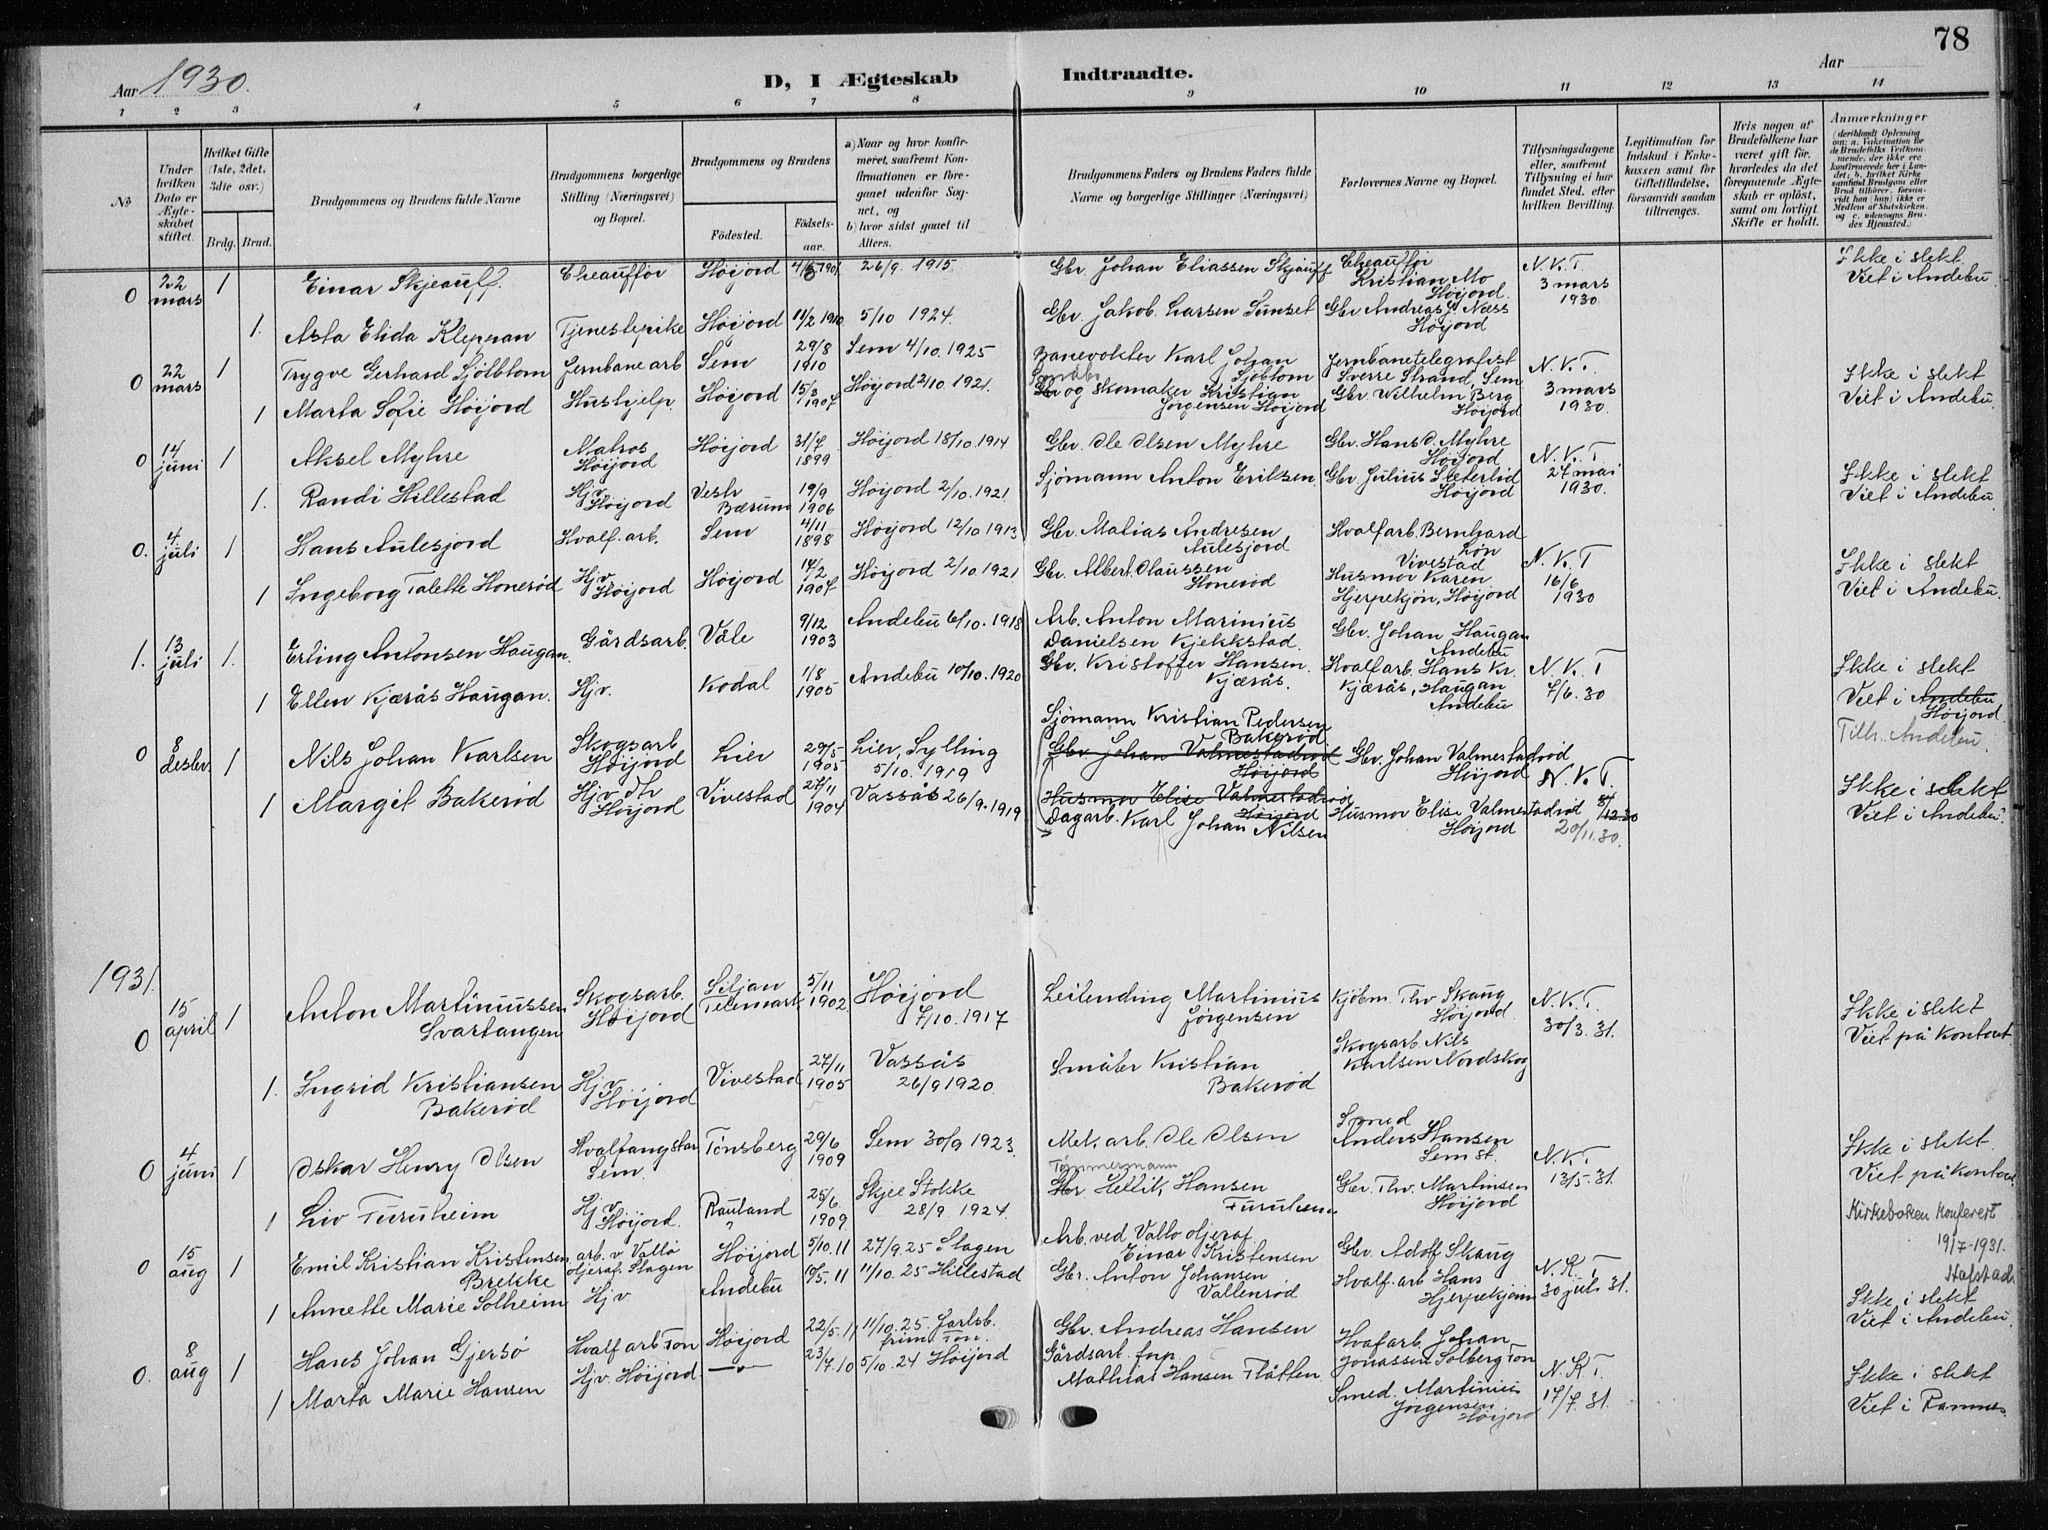 78
Aar 1930.
D, I Ægteskab Indtraadte.
Aar
1 2 3 4 5 6 7 8 9 10 11 12 13 14
No
Under hvilken Dato er Ægteskabet stiftet.
Hvilket Gifte (1ste, 2det, 3die osv.)
Brdg. Brud.
Brudgommens og Brudens fulde Navne
Brudgommens borgerlige Stilling (Næringsvei) og Bopæl.
Brudgommens og Brudens
Fødested. Fødselsaar.
a) Naar og hvor konfirmeret, saafremt Konfirmationen er foregaaet udenfor Sognet, og
b) hvor sidst gaaet til Alters.
Brudgommens Faders og Brudens Faders fulde Navne og borgerlige Stillinger (Næringsvei)
Forlovernes Navne og Bopæl.
Tillysningsdagene eller, saafremt Tillysning ei har fundet Sted, efter hvilken Bevilling.
Legitimation for Indskud i Enkekassen samt for Giftetilladelse, forsaavidt saadan tiltrænges.
Hvis nogen af Brudefolkene har været gift før, hvorledes da det foregaaende Ægteskab er opløst, samt om lovligt Skifte er holdt.
Anmærkninger (deriblandt Oplysning om: a. Vakcination for de Brudefolks Vedkommende, der ikke ere konfirmerede her i Landet; b. hvilket Kirkesamfund Brudgom eller Brud tilhører, forsaavidt han (hun) ikke er Medlem af Statskirken, og c. udensogns Brudes Hjemsted.)
0 22 mars 1 Einar Skjeauff. Cheauffør Høijord 1901 26/9. 1915. Gbr. Johan Eliassen Skjauff Cheauffør Kristian Mo Høijord. N.K.T. 3 mars 1930. Ikke i slekt. Viet i Andebu
1. Asta Elida Klepπan Tjenestepike Høijord 11/2 1910 5/10 1924. Gbr. Jakob Larsen Sunset Gbr. Andreas J. Næss Høijord
0 22 mars 1 Trygve Gerhard Sjölblom Jernbanearb Sem 29/8 1910 Sem 4/10. 1925 Banevokter Karl Johan Sjöblom Jernbanetelegrafist Sverre Strand, Sem N.K.T. 3 mars 1930. Ikke i slekt Viet i Andebu.
1 Marta Sofie Høijord Hushjelp. Høijord 15/3 1907 Høijord 2/10. 1921. Gbr og Skomaker Kristian Jørgensen Høijord Gbr. Wilhelm Berg Høijord
0 14 juni 1 Aksel Myhre Matros Høijord Høijord 31/7 1899 Høijord 18/10. 1914 Gbr. Ole Olsen Myhre Gbr. Hans O. Myhre Høijord N.K.T 27 mai 1930. Ikke i slekt Viet i Andebu
1. Randi Hillestad Hjv. Høijord Vestr Bærum 19/9 1906 Høijord 2/10. 1921. Sjømann Anton Eriksen Gbr. Julius Sæterlid Høijord
0. 4. juli 1 Hans Aulesjord Hvalf. arb. Sem 4/11 1898 Høijord 12/10 1913 Gbr. Matias Andresen Aulesjord Hvalfarb. Bernhard Løn Vivestad N.K.T 16/6 1930 Ikke i slekt Viet i Andebu.
1 Ingeborg Talette Honerød Hjv. Høijord Høijord 14/2 1907 Høijord 2/10. 1921 Gbr. Albert Olaussen Honerød Husmor Karen Hjerpekjøn, Høijord
1. 13 juli 1. Erling Antonsen Haugan. Gårdsarb. Våle 9/12 1903 Andebu 6/10. 1918 Arb. Anton Marinius Danielsen Kjekkstad. Gbr. Johan Haugan Andebu N.K.T 7/6. 30 Ikke i slekt Viet i Andebu Høijord. Tilh. Andebu
1 Ellen Kjærås Haugan. Hjv. Kodal 1/8 1905 Andebu 10/10. 1920 Gbr. Kristoffer Hansen. Kjærås. Hvalfarb. Hans Kr. Kjærås, Haugan Andebu
0 8 desbr. 1 Nils Johan Karlsen Skogsarb. Høijord Lier 29/5 1905 Lier, Sylling 5/10. 1919 Sjømann Kristian Pedersen Bakerød Gbr. Johan Valmestadrød Høijord Gbr. Johan Valmestadrød Høijord N.K.T. 8/12.30 20/11.30. Ikke i slekt Viet i Andebu.
1 Margit Bakerød Hjv. dtr Høijord Vivestad 27/11 1904 Vassås 26/9. 1919 Husmor Elise Valmestadrød Høijord Dagarb. Karl Johan Nilsen Husmor Elise Valmestadrød Høijord
1931.
0 15 april 1 Anton Martiniussen Svartangen Skogsarb. Høijord Siljan Telemark 5/11 1902. Høijord 7/10. 1917 Leilending Martinius Jørgensen Kjøbm. Thv Skaug Høijord. N.K.T. 30/3. 31. Ikke i slekt Viet på kontoret
1. Ingrid Kristiansen Bakerød Hjv. Høijord Vivestad 27/11 1905 Vassås 26/9 1920. Småbr Kristian Bakerød Skogsarb. Nils Karlsen Nordskog
0 4 juni 1 Oskar Henry Olsen Hvalfangstar Sem. Tønsberg 29/6 1909 Sem 30/9 1923. Mek. arb. Ole Olsen Smed Anders Hansen Sem st. N.K.T. 13/5. 31. Ikke i slekt. Viet på kontoret
1 Liv Furuheim Hjv. Høijord. Rauland 25/6. 1909 Skjee Stokke 28/9. 1924. Tømmermann Gbr. Hellik Hansen Furuheim Gbr. Thv. Martinsen Høijord
Kirkeboken konferert 1917-1931. Hafstad
0 15 aug 1 Emil Kristian Kristensen Brekke arb. v Vallø oljeraf. Slagen Høijord 5/10. 11 27/9. 25 Slagen Arb. ved Vallø oljeraf. Einar Kristensen Gbr. Adolf Skaug N.K.T 30 juli 31. Ikke i slekt Viet i Andebu
1 Annette Marie Solheim Hjv Andebu 19/5. 11 11/10. 25 Hillestad Gbr. Anton Johansen Vallenrød Hvalf. arb Hans Hjerpekjønn
0. 8 aug 1 Hans Johan Gjersø Hvalf arb Tøn Høijord 22/5. 11 11/10. 25. Jarlsb. frim. Tøn. Gbr. Andreas Hansen Hvafarb. Johan Jonassen Solberg Tøn N.K.T. 17/7. 31. Ikke i slekt Viet i Ramnes
1 Marta Marie Hansen Hjv. Høijord. —"— 23/7. 10 5/10. 24 Høijord Gårdsarb. fnp. Mathias Hansen Flåtten Smed. Martinius Jørgensen Høijord